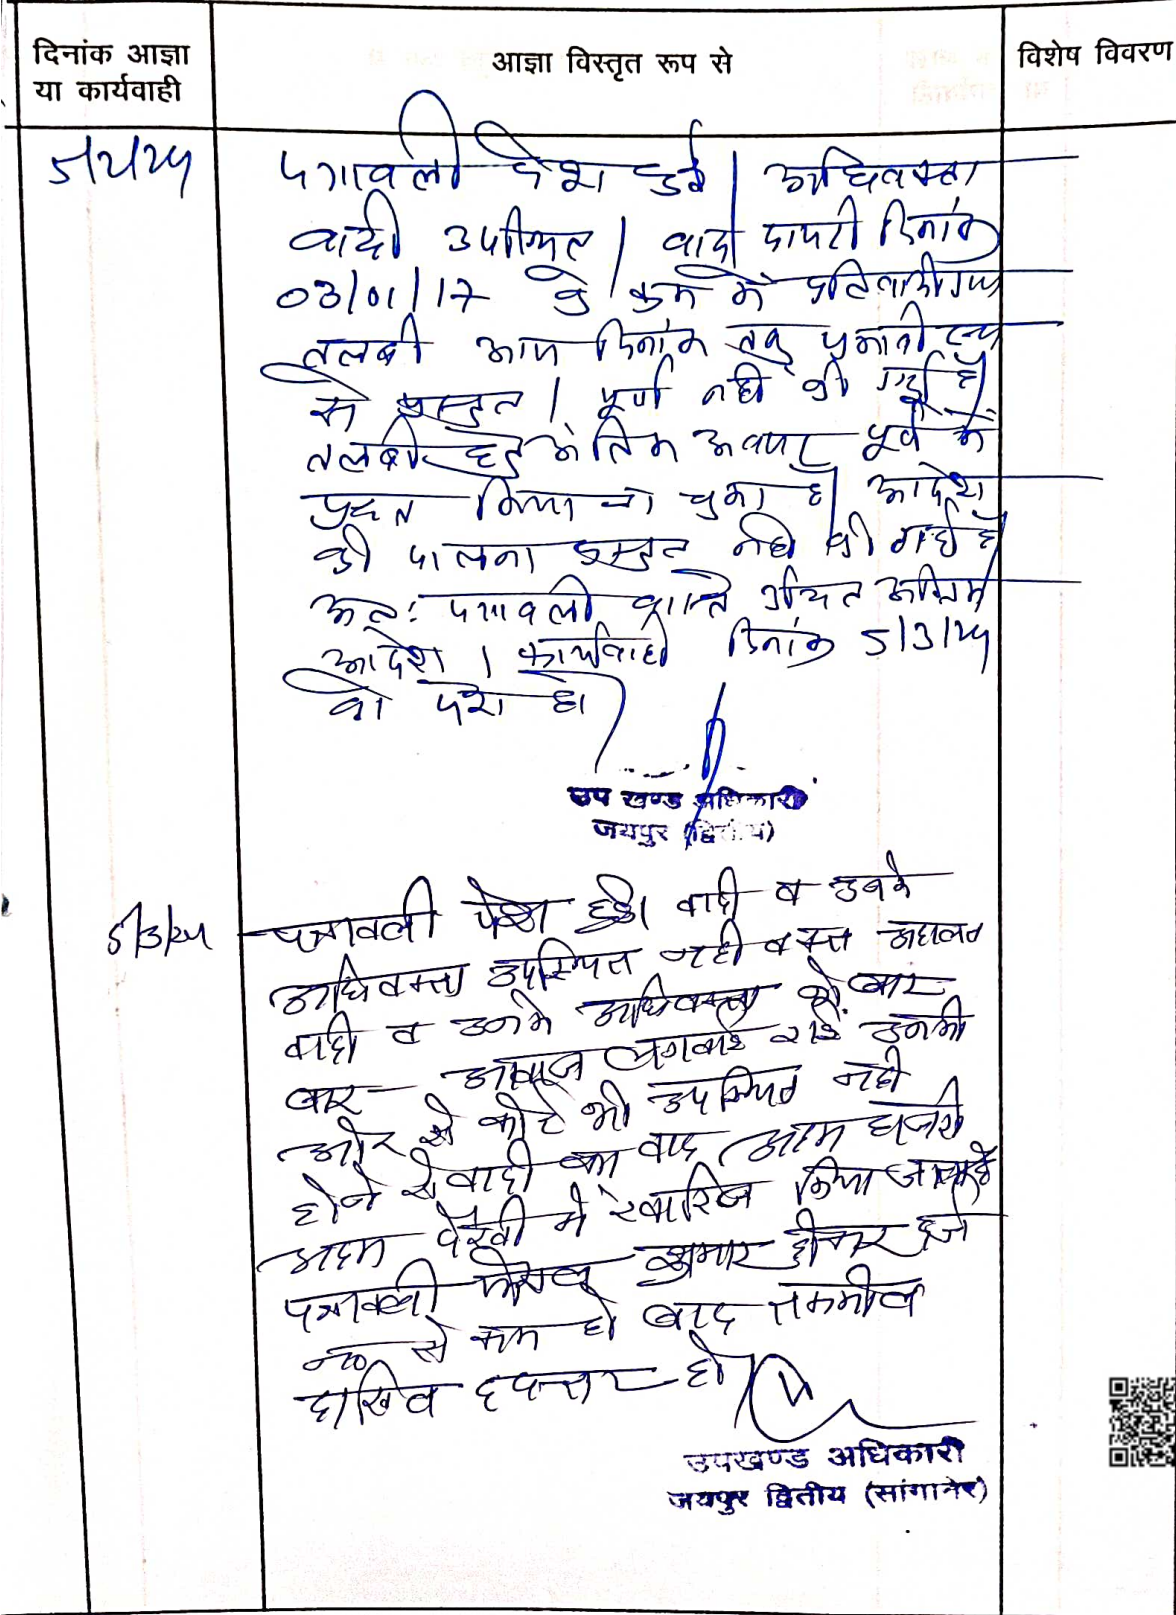 दिनांक आज्ञा
या कार्यवाही
आज्ञा विस्तृत रूप से
विशेष विवरण
पत्रावली पेश हुई। अधिवक्ता
वादी उपस्थित। वादी दायरी दिनांक
03/01/17 के क्रम में प्रतिवादीगण
तलबी आज दिनांक तक
से प्रस्तुत / पूर्ण नहीं की गई है
तलबी हेतु अंतिम अवसर पूर्व में
प्रदत्त किया जा चुका है। आदेश
की पालना प्रस्तुत नहीं की गई है
अतः पत्रावली वास्ते अंतिम
आदेश / कार्यवाही दिनांक 5/3/24
को पेश हो।
उप खण्ड अधिकारी
जयपुर (द्वितीय)
5/3/24
पत्रावली पेश हुई। वादी व उनके
अधिवक्ता उपस्थित नहीं वक्त अदालत
वादी व उनके अधिवक्ता को बार
बार आवाज लगवाई गई उनकी
ओर से कोई भी उपस्थित नहीं
होने से वादी का वाद अदम हाजरी
अदम पैरवी में खारिज किया जाता है
पत्रावली फैसल शुमार होकर दर्ज
न० से कम हो बाद तकमील
दाखिल दफ्तर हो।
उपखण्ड अधिकारी
जयपुर द्वितीय (सांगानेर)